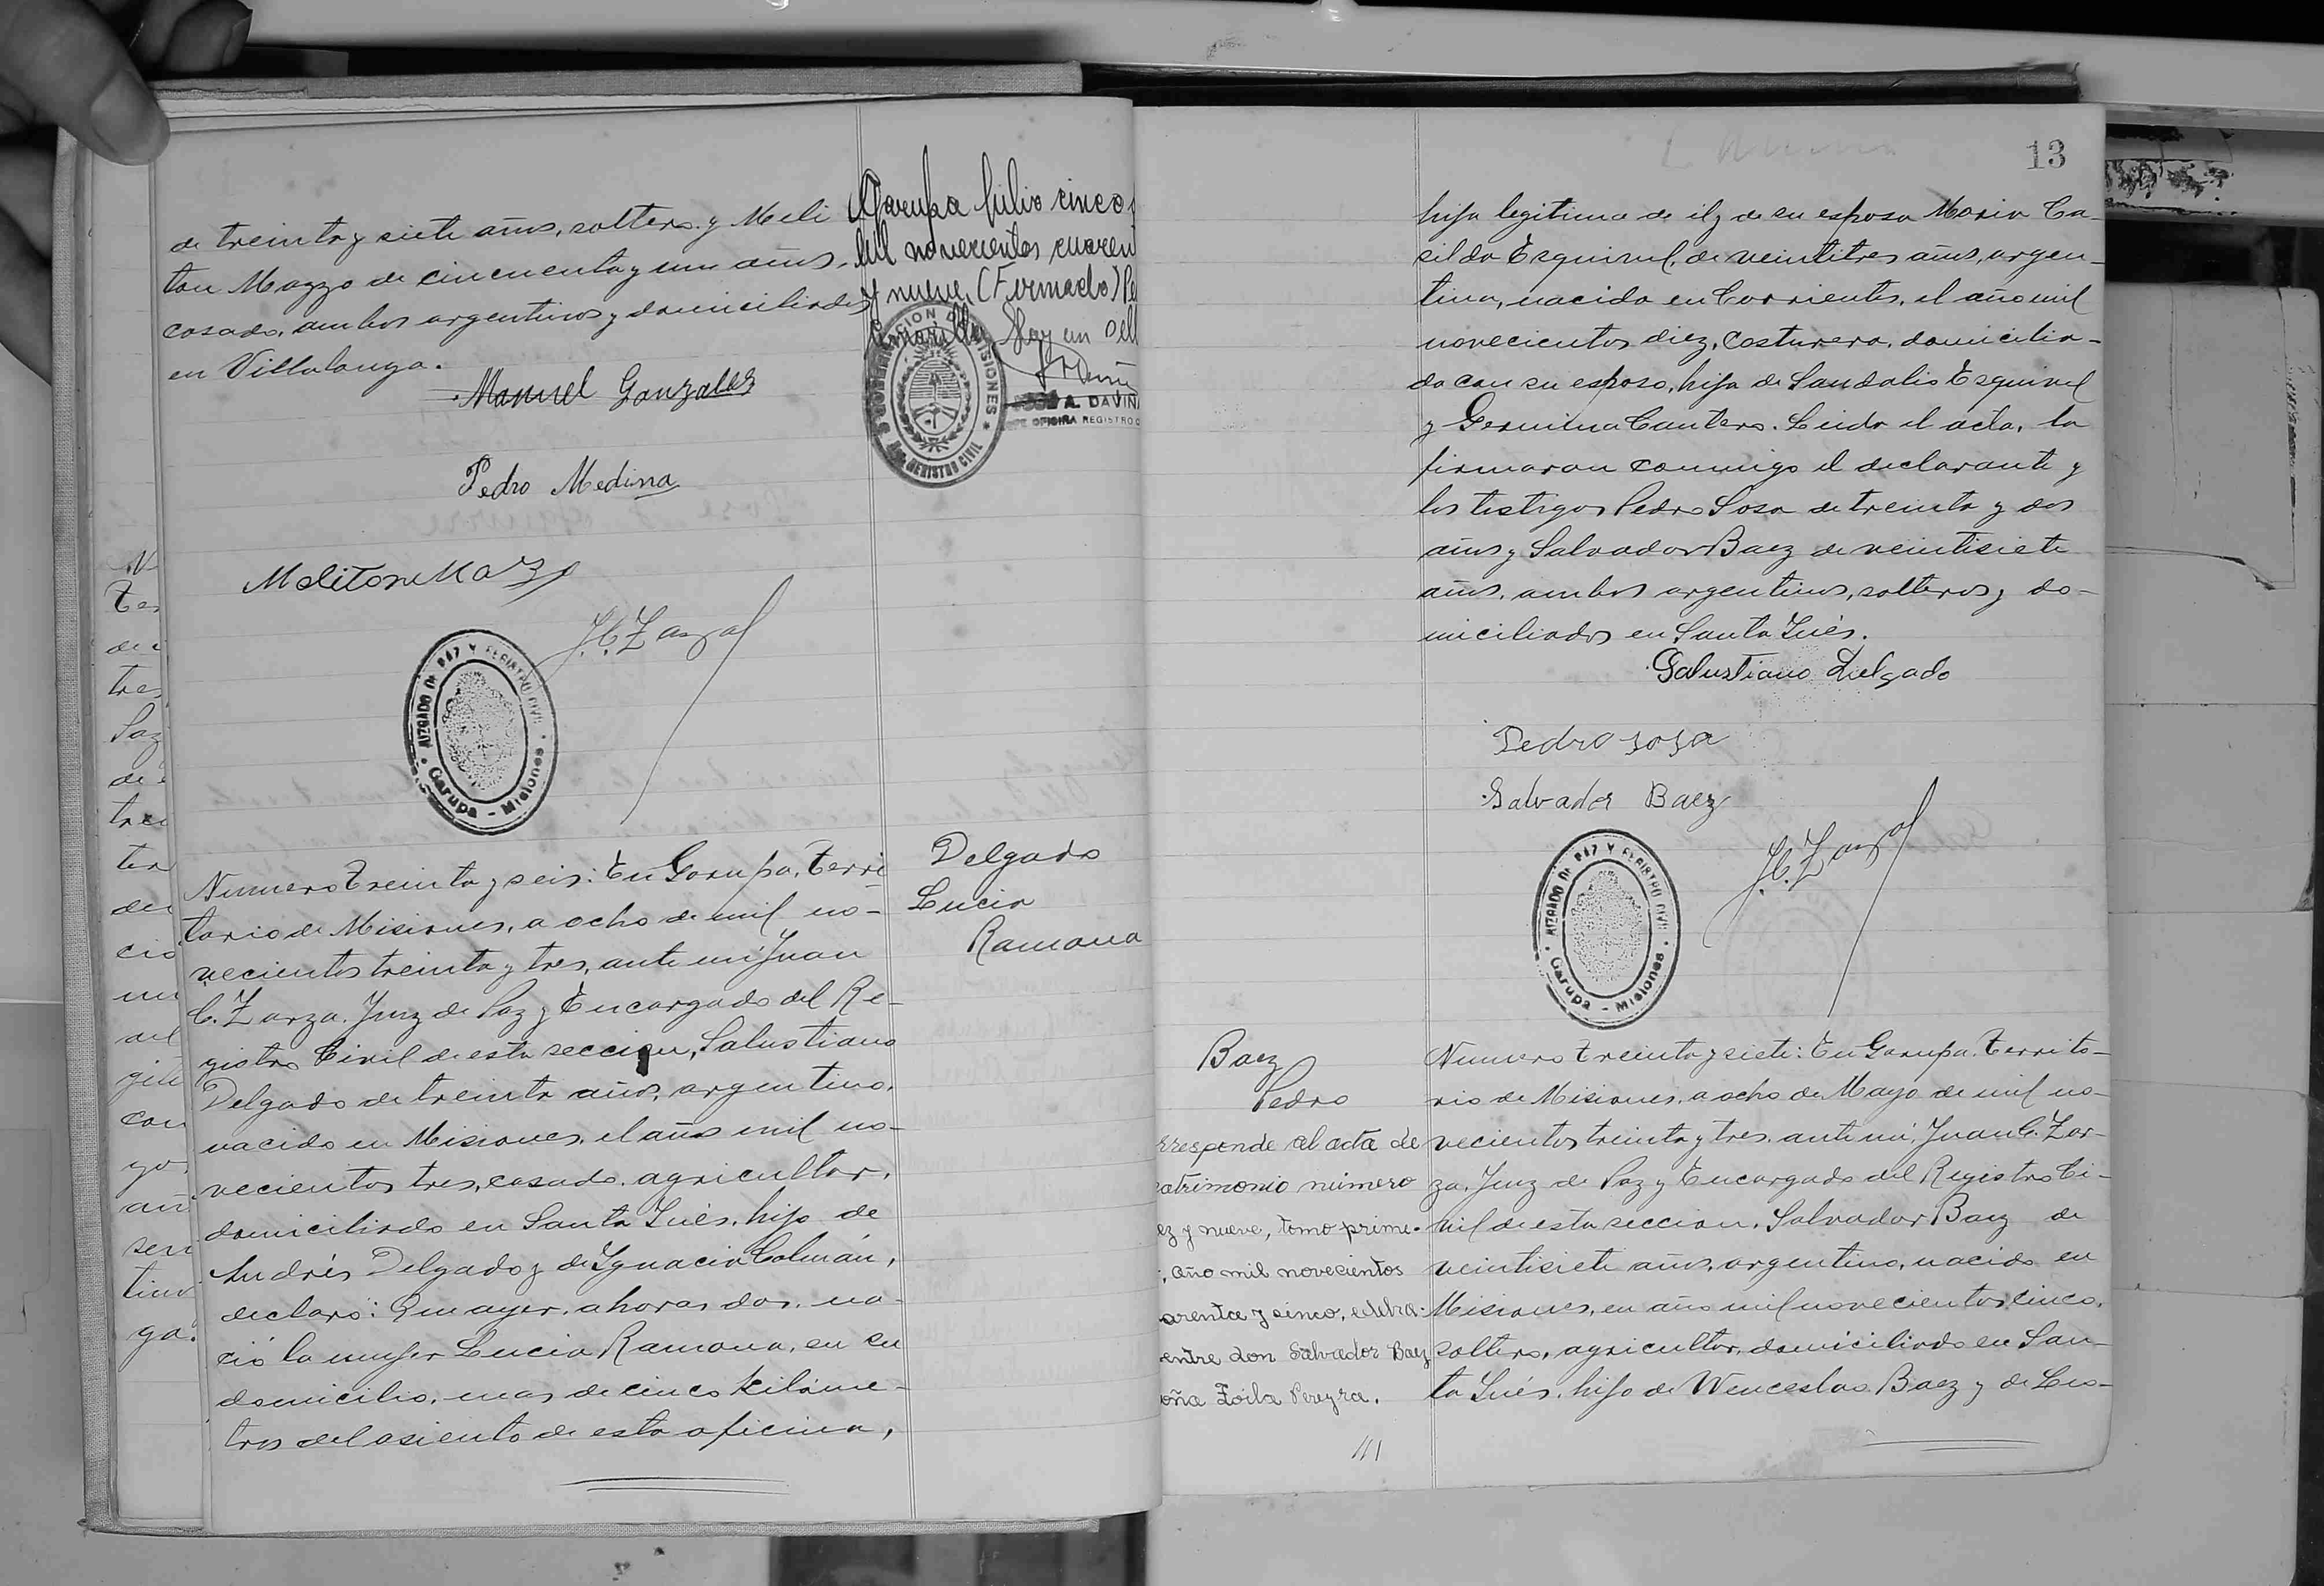 de treinta y siete años, soltero y Meli
ton Mazzo de cincuenta y un años,
casado, ambos argentinos y domiciliados
en Villalonga.
Manuel Gonzalez
Pedro Medina
Meliton Mazo
J. C. Zarza
JUZGADO DE PAZ Y REGISTRO CIVIL
Garupa - Misiones
Garupa Julio cinco
mil novecientos cuaren
y nueve. (Firmado)
Hay un sell
GOBERNACION DE MISIONES
REGISTRO CIVIL
A. DAVIÑA
OFICINA REGISTRO
Numero Treinta y seis: En Garupa, Terri
torio de Misiones, a ocho de mil no-
vecientos treinta y tres, ante mi Juan
C. Zarza. Juez de Paz y Encargado del Re-
gistro Civil de esta seccion, Salustiano
Delgado de treinta años, argentino,
nacido en Misiones, el año mil no-
vecientos tres, casado, agricultor,
domiciliado en Santa Inés, hijo de
Andrés Delgado y de Ignacia Colmán,
declaró: Que ayer, a horas dos, na-
ció la mujer Lucia Ramona, en su
domicilio, mas de cinco kilóme-
tros del asiento de esta oficina,
Delgado
Lucia
Ramona
13
hija legitima de él y de su esposa Maria Ca-
silda Esquivel, de veintitres años, argen-
tina, nacida en Corrientes, el año mil
novecientos diez, costurera, domicilia-
da con su esposo, hija de Sandalio Esquivel
y Germina Cantero. Leida el acta, la
firmaron conmigo el declarante y
los testigos Pedro Sosa de treinta y dos
años y Salvador Baez de veintisiete
años, ambos argentinos, solteros y do-
miciliados en Santa Inés.
Salustiano Delgado
Pedro Sosa
Salvador Baez
J. C. Zarza
JUZGADO DE PAZ Y REGISTRO CIVIL
Garupa - Misiones
Baez
Pedro
rresponde al acta de
atrimonio número
ez y nueve, tomo prime-
, año mil novecientos
arenta y cinco, celebra-
entre don Salvador Baez
oña Zoila Pereyra.
Numero Treinta y siete: En Garupa, Territo-
rio de Misiones, a ocho de Mayo de mil no-
vecientos treinta y tres, ante mi, Juan C. Zar-
za, Juez de Paz y Encargado del Registro Ci-
vil de esta seccion, Salvador Baez de
veintisiete años, argentino, nacido en
Misiones, en año mil novecientos cinco,
soltero, agricultor, domiciliado en San-
ta Inés, hijo de Wenceslao Baez y de Leo-